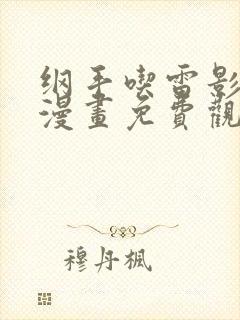 纲手喫雷影
漫畫免費觀
穆丹楓